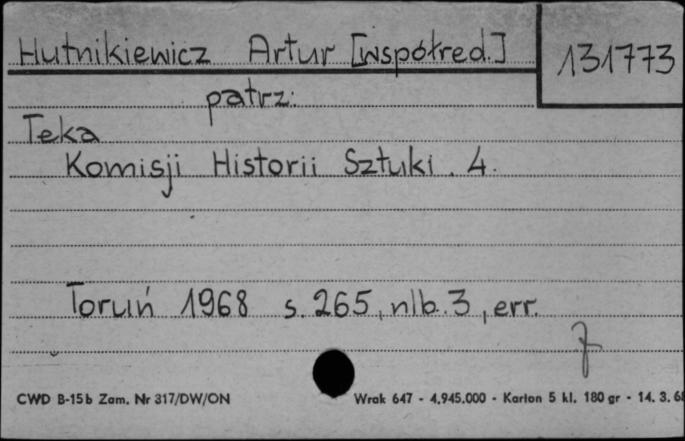 Hutnikiewicz Artur [współred.] 131773
patrz:
Teka
Komisji Historii Sztuki. 4.
Toruń 1968 s. 265, nlb. 3, err.
CWD B-15b Zam. Nr 317/DW/ON Wrak 647 - 4.945.000 - Karton 5 kl. 180 gr - 14. 3. 68